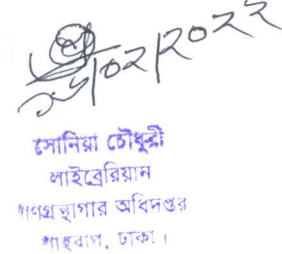 ০২/২০২২
সোনিয়া চৌধুরী
লাইব্রেরিয়ান
গণগ্রন্থাগার অধিদপ্তর
শাহবাগ, ঢাকা।